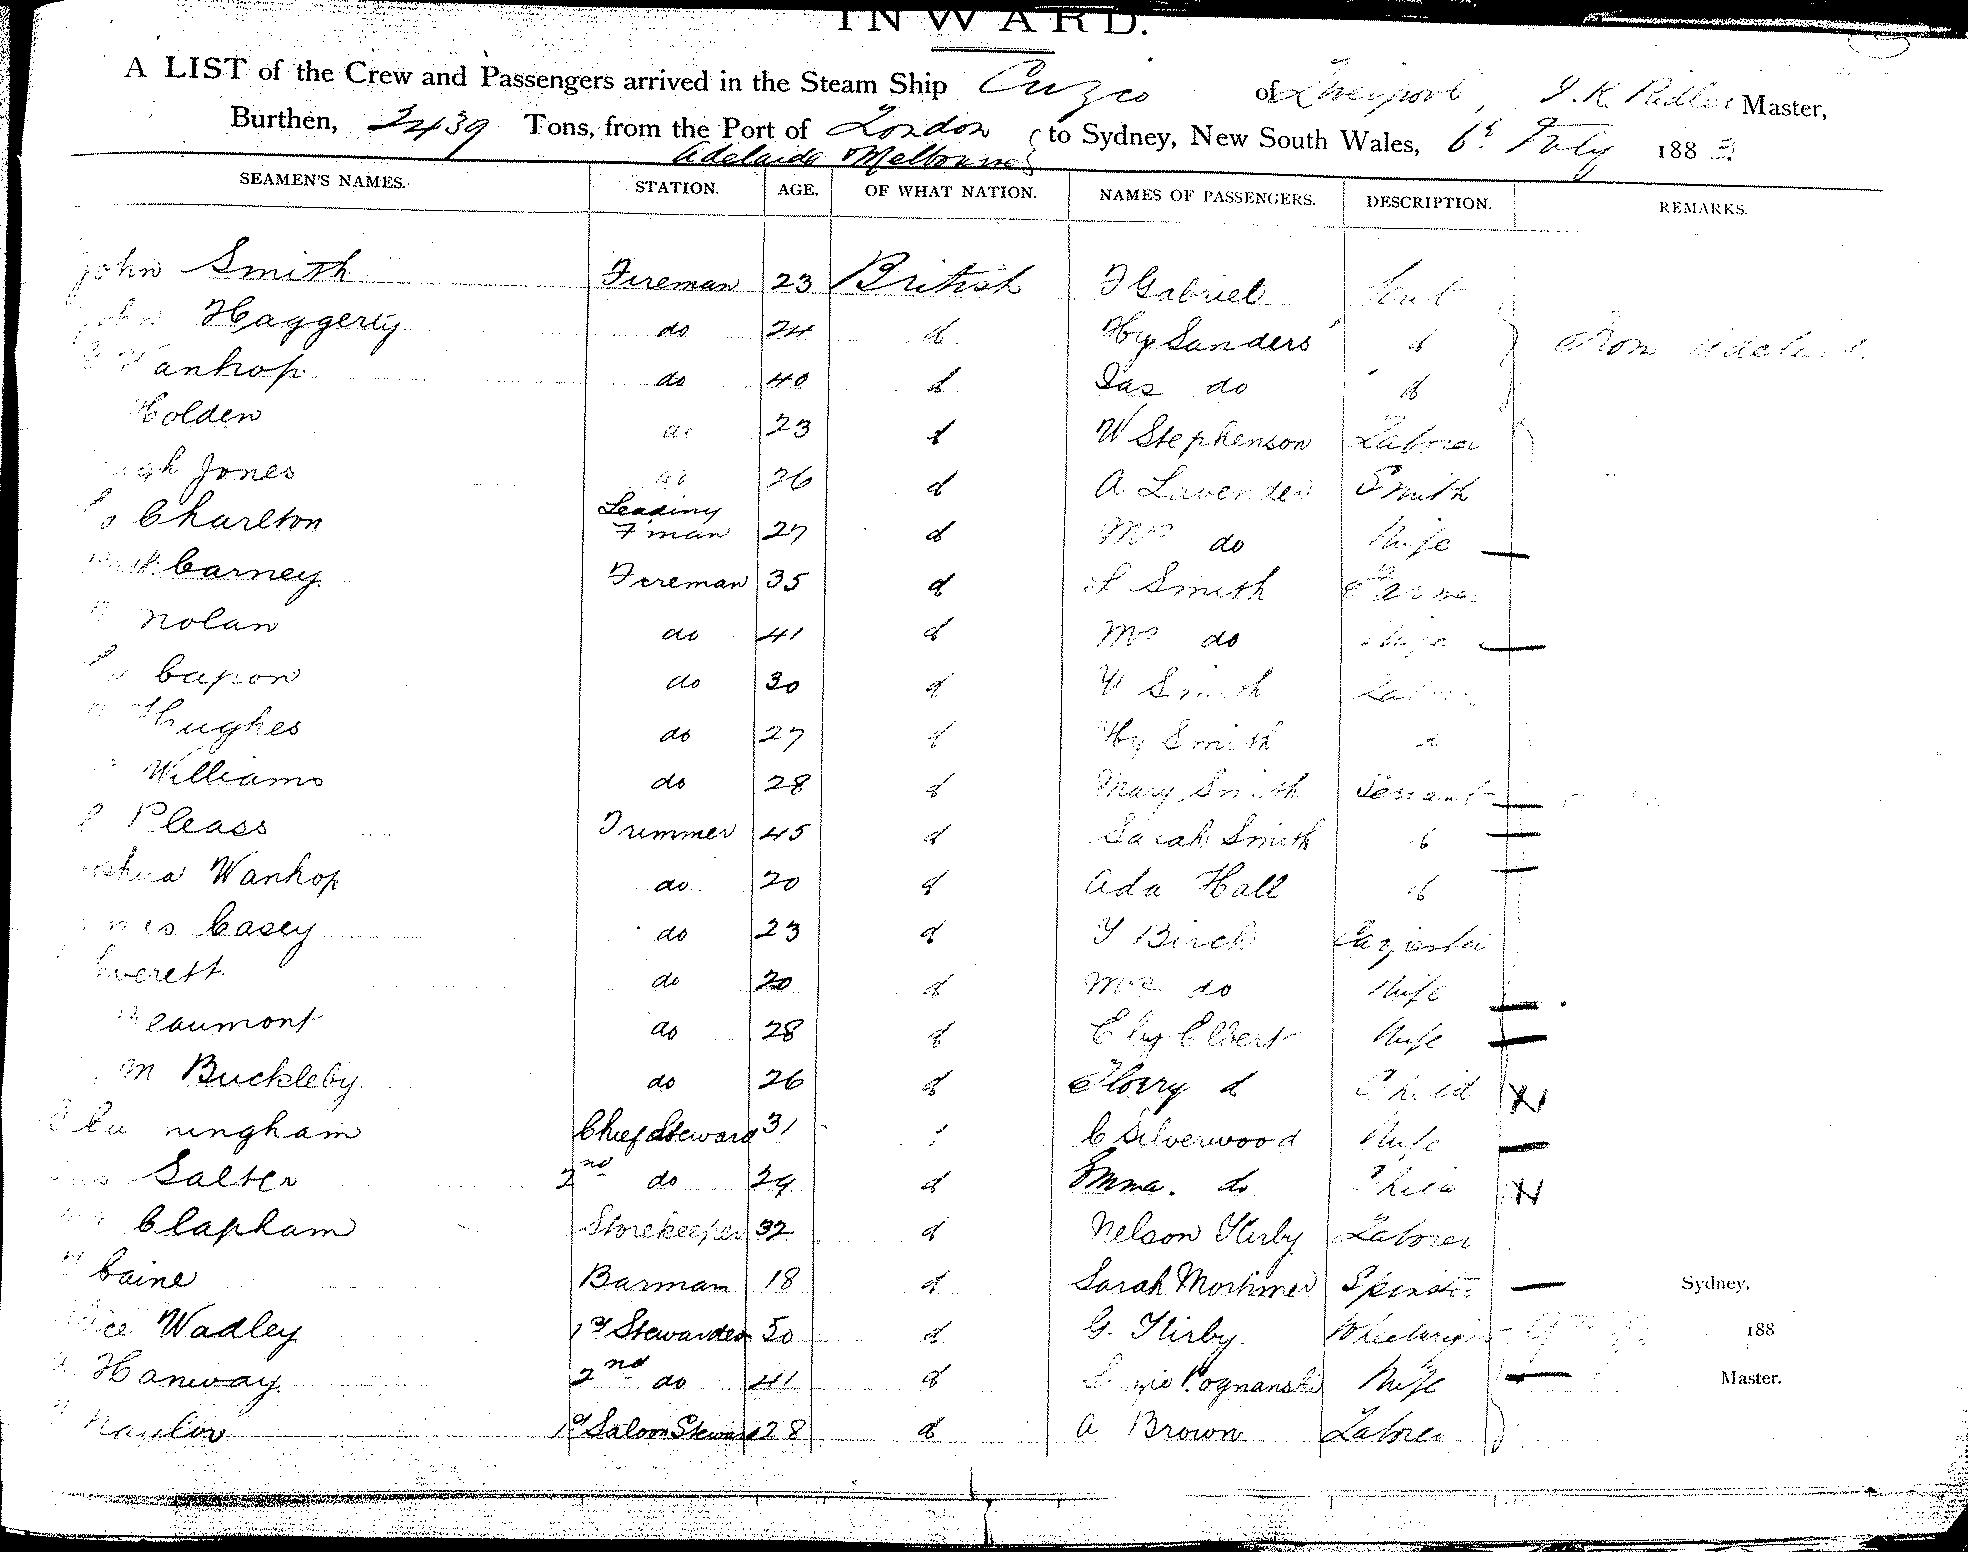 INWARD.
A LIST of the Crew and Passengers arrived in the Steam Ship Cuzco of Liverpool, J.K. Ridler Master,
Burthen, 2439 Tons, from the Port of London to Sydney, New South Wales, 6th July 1883
Adelaide Melbourne
SEAMEN'S NAMES. STATION. AGE. OF WHAT NATION. NAMES OF PASSENGERS. DESCRIPTION. REMARKS.
John Smith Fireman 23 British F Gabriel
John Haggerty do 24 d Hy Sanders d From Adelaide
Wanhop do 40 d Jas do d
Holden do 23 d W Stephenson Laborer
Jones do 26 d A Lavender Smith
Charlton Leading F'man 27 d Mrs do Wife
Carney Fireman 35 d Smith Farmer
Nolan do 41 d Mrs do Wife
Capon do 30 d W Smith Labor
Hughes do 27 d Hy Smith d
Williams do 28 d Mary Smith Servant
Pleass Trimmer 45 d Sarah Smith d
Wanhop do 20 d Ada Hall d
Casey do 23 d Birch Carpenter
Everett do 20 d Mrs do Wife
Beaumont do 28 d Elbert Wife
M Buckleby do 26 d Florry d Child
Cunningham Chief Steward 31 C Silverwood Wife
Salter 2nd do 29 d Emma. do Child
Clapham Storekeeper 32 d Nelson Kirby Laborer
Caine Barman 18 d Sarah Mortimer Spinster Sydney.
Wadley 1st Stewardess 50 d G. Kirby Wheelwright 188
Hanway 2nd do 41 d Wife Master.
Naylor 1st Saloon Steward 28 d A Brown Laborer